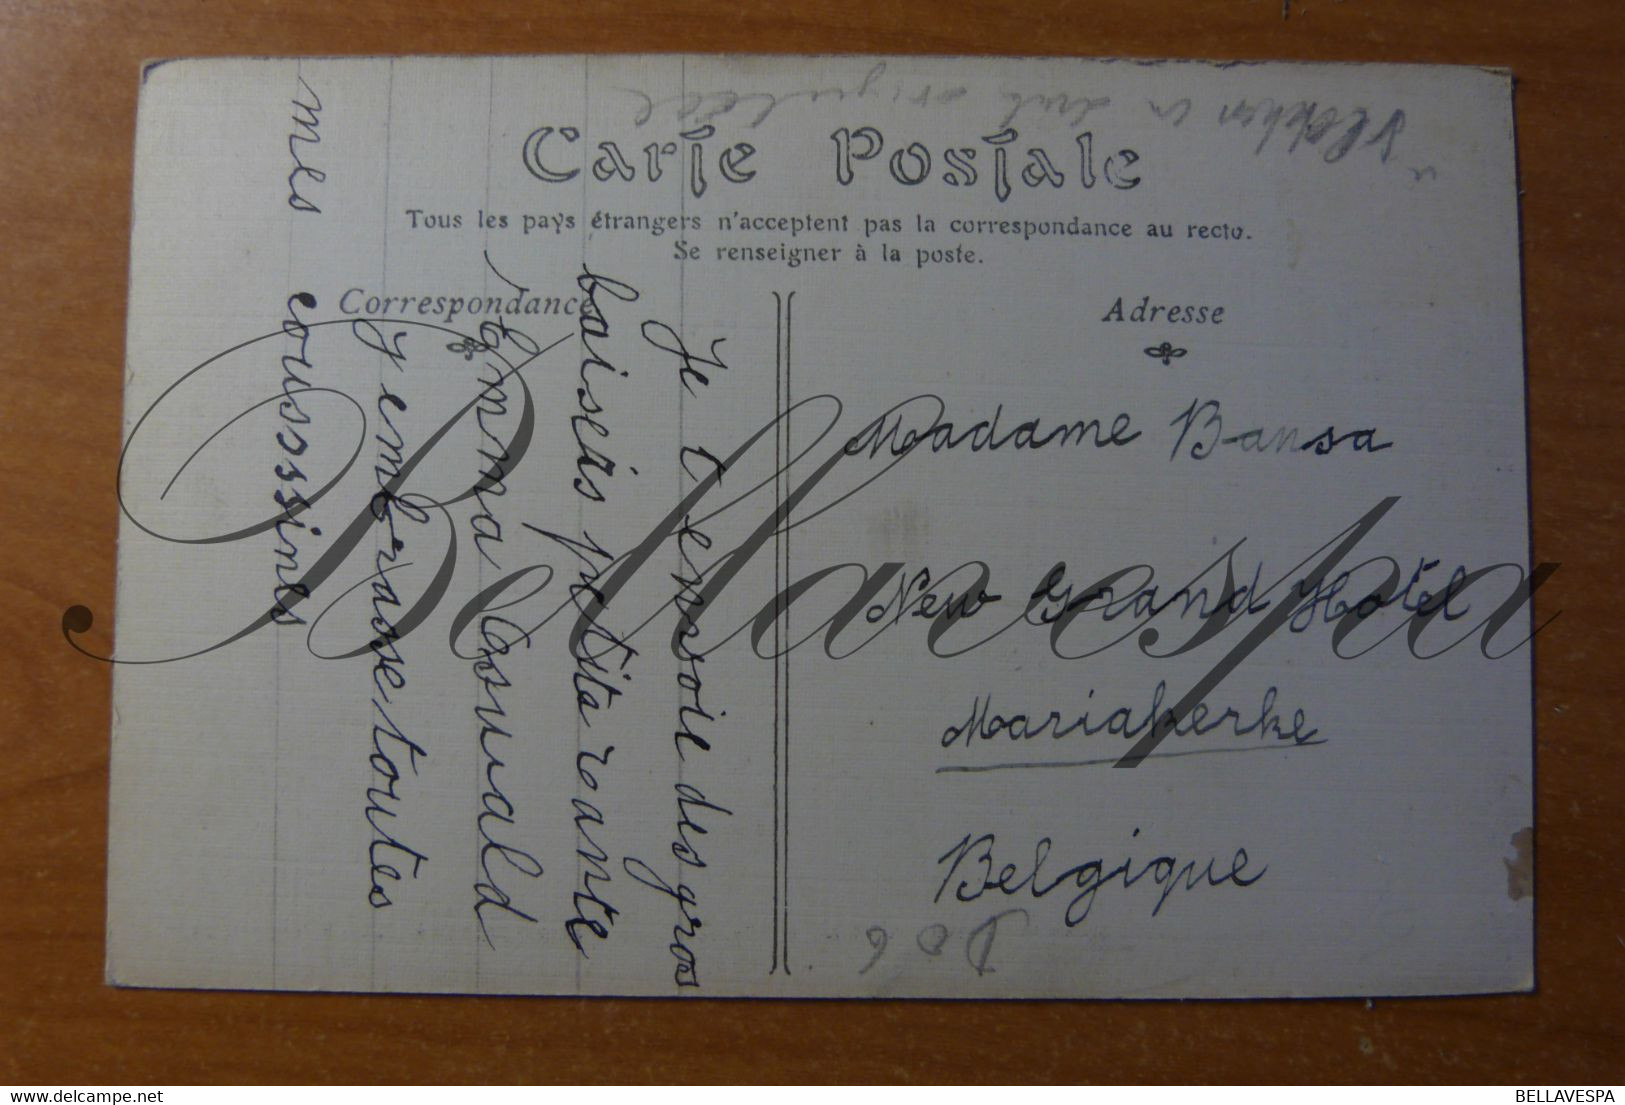 Carte Postale
Tous les pays étrangers n'acceptent pas la correspondance au recto.
Se renseigner à la poste.
Correspondance
Adresse
Je t envoie des gros
baisers petita rante
Emma Oswald
J embrasse toutes
mes coussines
Madame Bansa
New Grand Hotel
Mariakerke
Belgique
D06
Bellavespa
BELLAVESPA